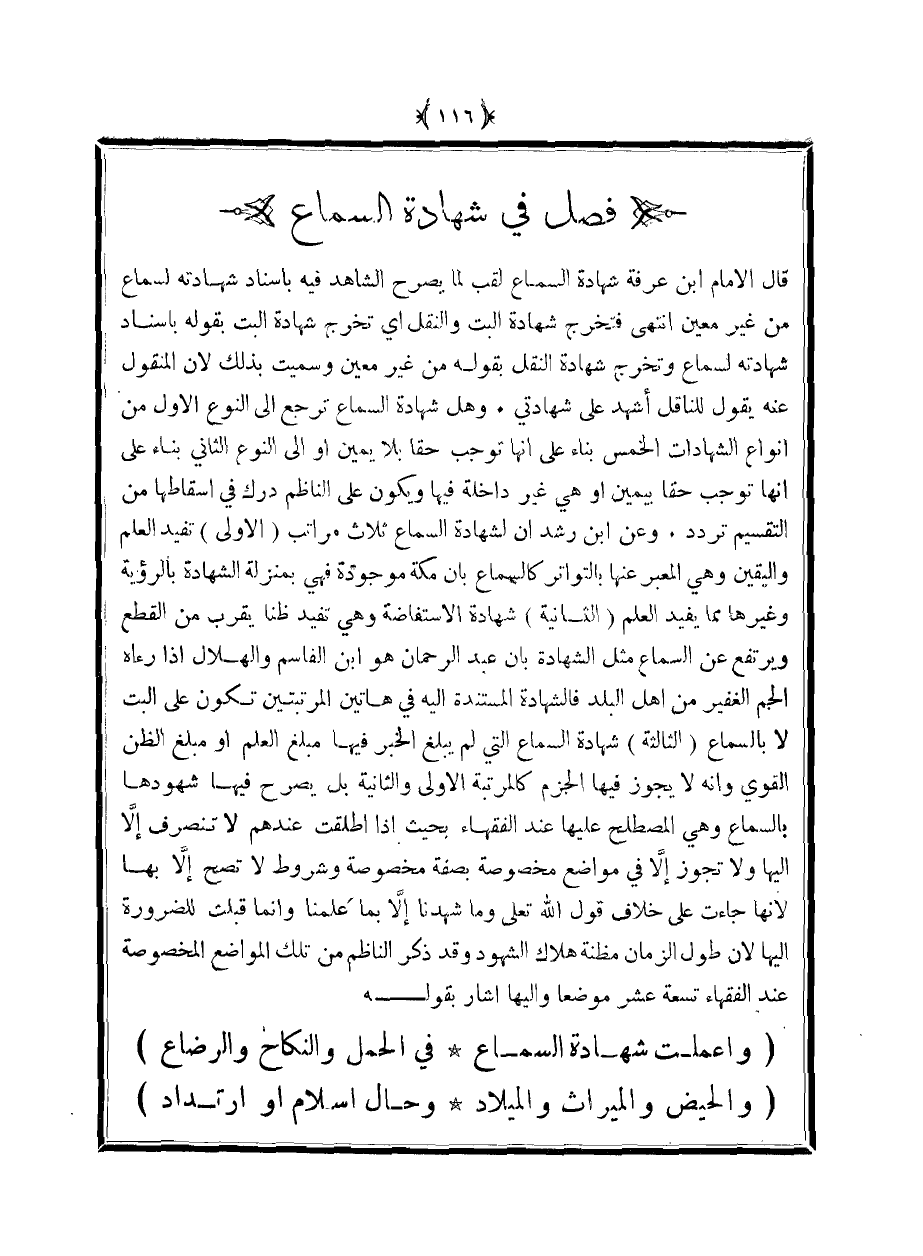 ﴿ ١١٦ ﴾
فصل في شهادة السماع
قال الامام ابن عرفة شهادة السماع لقب لما يصرح الشاهد فيه باسناد شهادته لسماع
من غير معين انتهى فتخرج شهادة البت والنقل اي تخرج شهادة البت بقوله باسناد
شهادته لسماع وتخرج شهادة النقل بقوله من غير معين وسميت بذلك لان المنقول
عنه يقول للناقل أشهد على شهادتي ٠ وهل شهادة السماع ترجع الى النوع الاول من
انواع الشهادات الخمس بناء على انها توجب حقا بلا يمين او الى النوع الثاني بناء على
انها توجب حقا بيمين او هي غير داخلة فيها ويكون على الناظم درك في اسقاطها من
التقسيم تردد ٠ وعن ابن رشد ان لشهادة السماع ثلاث مراتب ( الاولى ) تفيد العلم
واليقين وهي المعبر عنها بالتواتر كالسماع بان مكة موجودة فهي بمنزلة الشهادة بالرؤية
وغيرها مما يفيد العلم ( الثانية ) شهادة الاستفاضة وهي تفيد ظنا يقرب من القطع
ويرتفع عن السماع مثل الشهادة بان عبد الرحمان هو ابن القاسم والهلال اذا رءاه
الجم الغفير من اهل البلد فالشهادة المستندة اليه في هاتين المرتبتين تكون على البت
لا بالسماع ( الثالثة ) شهادة السماع التي لم يبلغ الخبر فيها مبلغ العلم او مبلغ الظن
القوي وانه لا يجوز فيها الجزم كالمرتبة الاولى والثانية بل يصرح فيها شهودها
بالسماع وهي المصطلح عليها عند الفقهاء بحيث اذا اطلقت عندهم لا تنصرف إلَّا
اليها ولا تجوز إلَّا في مواضع مخصوصة بصفة مخصوصة وشروط لا تصح إلَّا بها
لانها جاءت على خلاف قول الله تعلى وما شهدنا إلَّا بما علمنا وانما قبلت للضرورة
اليها لان طول الزمان مظنة هلاك الشهود وقد ذكر الناظم من تلك المواضع المخصوصة
عند الفقهاء تسعة عشر موضعا واليها اشار بقوله
( واعملت شهادة السماع * في الحمل والنكاح والرضاع )
( والحيض والميراث والميلاد * وحال اسلام او ارتداد )